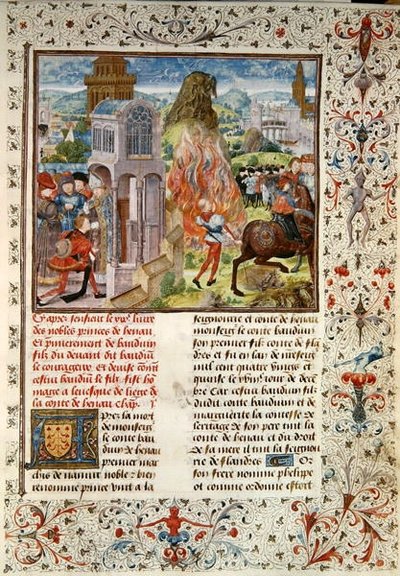 Cy apres sensieut le vııȷᵉ livre
des nobles princes de henau.
Et premierement de bauduin
filz du devant dit bauduin
le courageux. Et devise com̄t
cestui bauduin le filz fist ho
mage a levesque de liege de
la conte de henau. Chap.
Apres la mort
de monseigr
le conte bau
duin de henau
premier mar
chis de namur noble et bien
renomme prince vint a la
seignourie et conte de henau
monseigr le conte bauduin
son premier filz conte de flā
dres et fu en lan de nreseigr
mil cent quatre vingts et
quinse le jour de dece
bre Car cestui bauduin filz
dudit conte bauduin et de
marguerite la contesse de
heritage de son pere tint la
conte de henau et du droit
de sa mere il tint la seignou
rie de flandres
son frere nomme phelippe
ot comme ordonne estoit